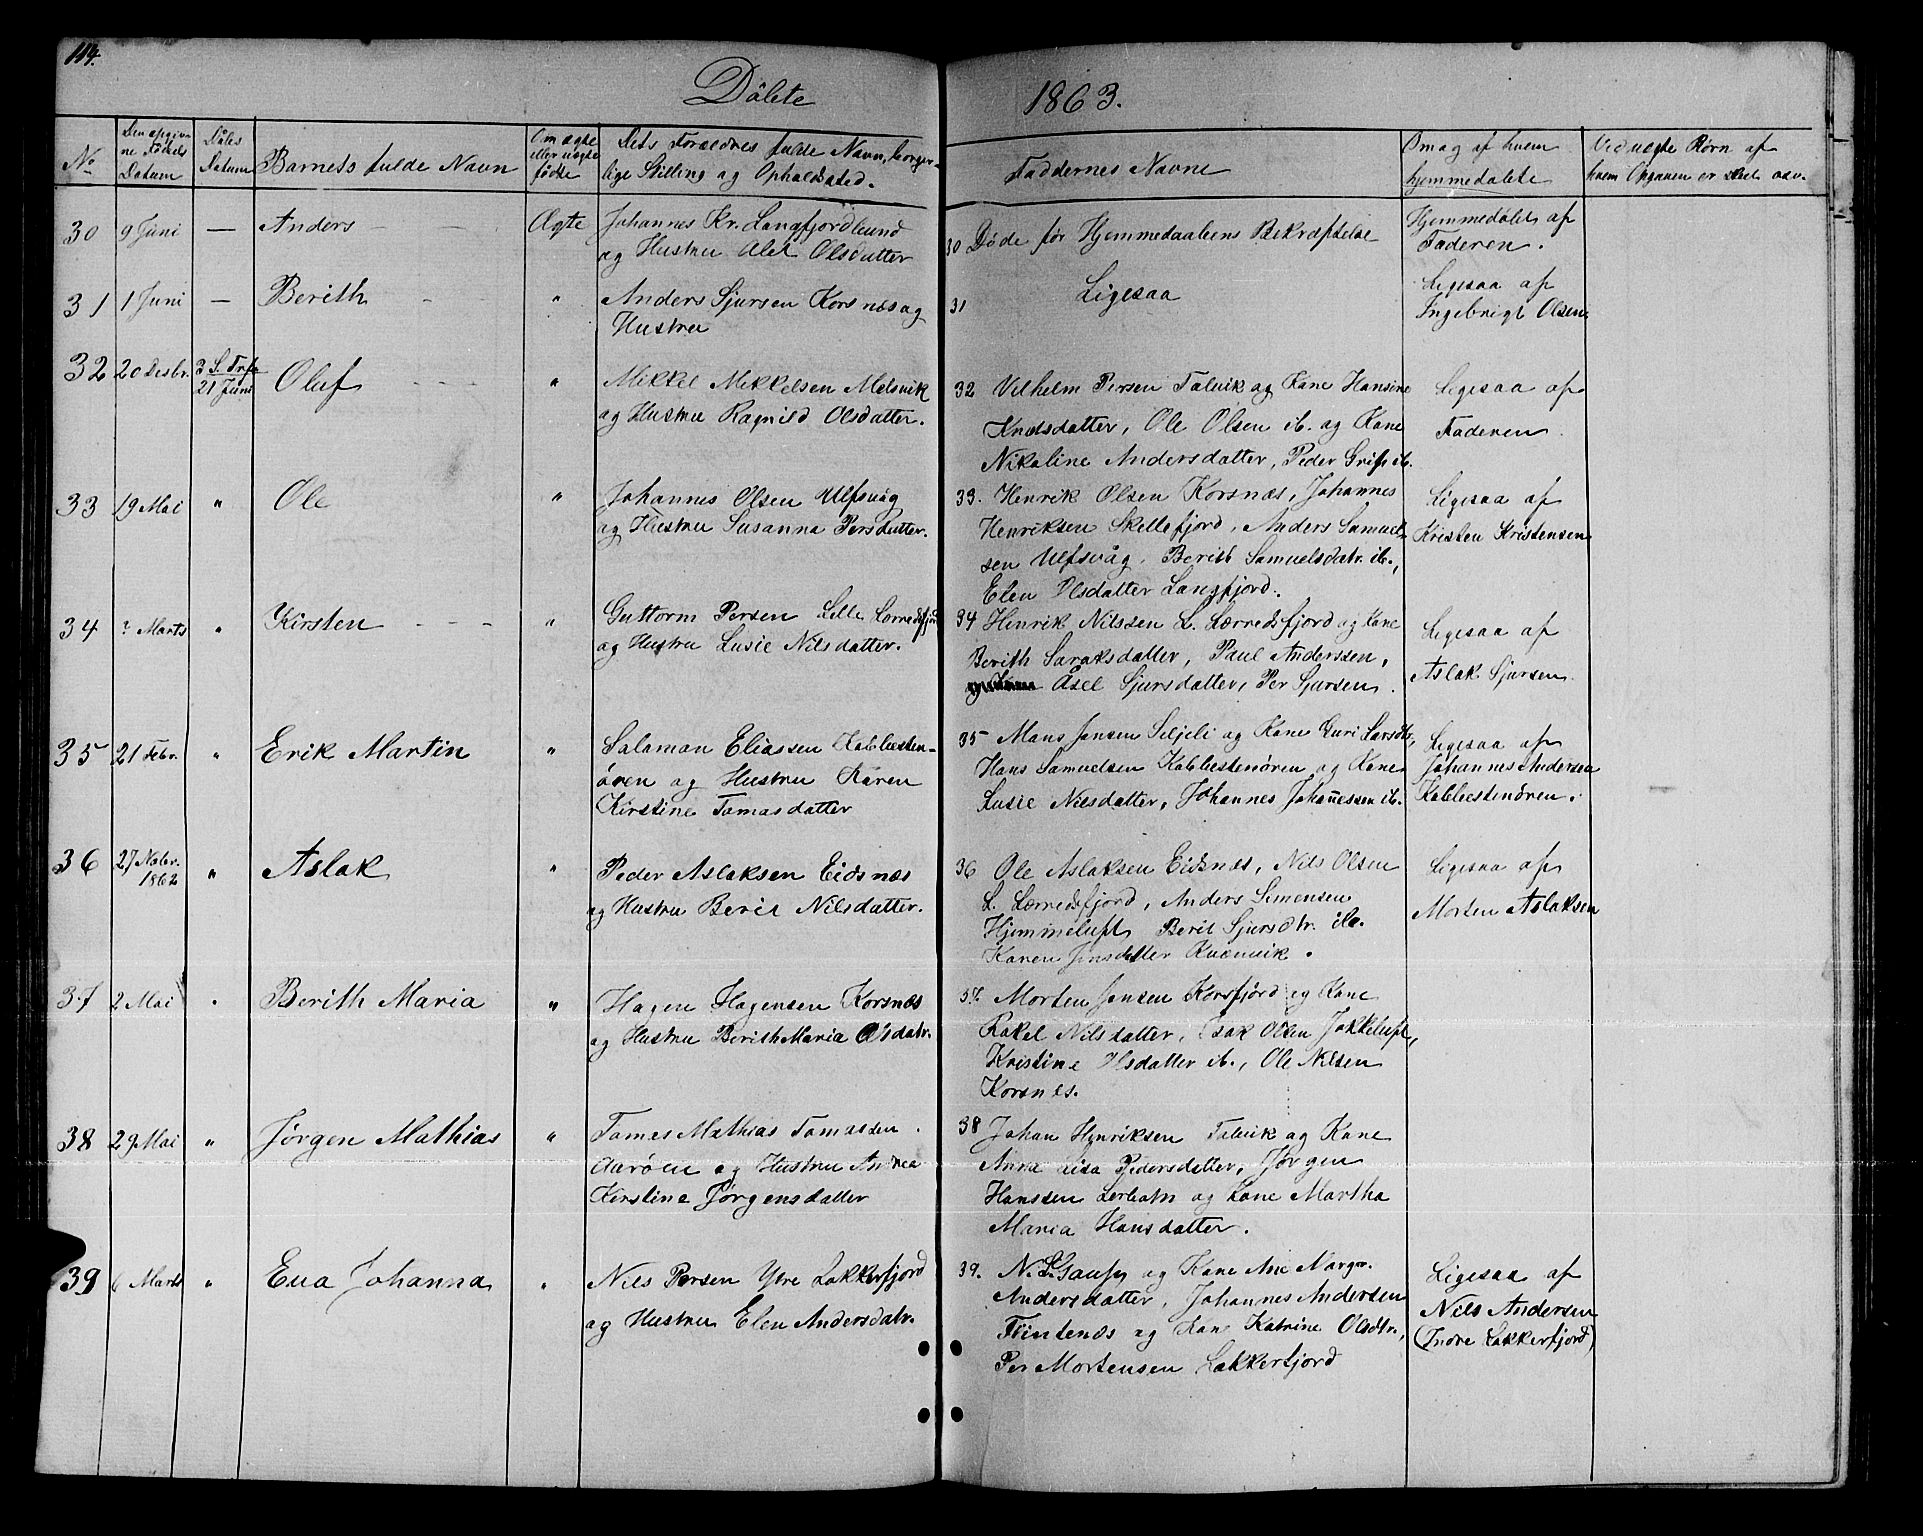 114.
Døbte 1863.
No
Den opgiv
ne Fødsels
Datum
Dåbs
Datum
Barnets fulde Navn
Om ægte
eller uægte
fødte
Dets Forældres fulde Navn, borger-
lige Stilling og Opholdssted.
Faddernes Navne
Om og af hvem
hjemmedøbte
Ved uægte Børn af
hvem Opgaven er
30 9 Juni — Anders Ægte Johannes Kr. Langfjordbund
og Hustru Alet Olsdatter
30 Døde før Hjemmedaabens Bekræftelse
Hjemmedøbt af
Faderen.
31 1 Juni — Berith " Anders Sjursen Korsnæs og
Hustru
31 Ligesaa
Ligesaa af
Ingebrigt Olsen
32 20 Desbr. 3 S. Tref.
21 Juni Oluf " Mikkel Mikkelsen Melsvik
og Hustru Ragnild Olsdatter.
32 Vilhelm Persen Talvik og Kone Hansine
Knudsdatter, Ole Olsen ib. og Kone
Nikoline Andersdatter, Peder Griph ib.
Ligesaa af
Faderen.
33 19 Mai " Ole " Johannes Olsen Ulfsvåg
og Hustru Susanna Persdatter.
33. Henrik Olsen Korsnæs, Johannes
Henriksen Skillefjord, Anders Samuel-
sen Ulfsvåg, Berit Samuelsdatr. ib.,
Elen Olsdatter Langfjord.
Ligesaa af
Kristen Kristensen
34 ? Marts " Kirsten " Guttorm Persen Lille Lerredsfjord
og Hustru Lusie Nilsdatter.
34 Henrik Nilssen L. Lerredsfjord og Kone
Berith Saraksdatter, Paul Anderssen,
Åsel Sjursdatter, Per Sjursen.
Ligesaa af
Aslak Sjursen.
35 21 Febr. " Erik Martin " Salamon Eliassen Kobbesten-
ören og Hustru Karen
Kirstine Tomasdatter
35 Mans Jensen Seljeli og Kone Guri Larsdtr,
Hans Samuelsen Kobbestenören og Kone
Lusie Nilsdatter, Johannes Johanessen ib.
Ligesaa af
Johannes Andersen
Kobbestenören.
36 27 Novbr.
1862 " Aslak " Peder Aslaksen Eidsnæs
og Hustru Berit Nilsdatter.
36 Ole Aslaksen Eidsnæs, Nils Olsen
L. Lerredsfjord, Anders Simonsen
Hjemmeluft Berit Sjursdtr. ib.
Karen Jensdatter Kvænvik.
Ligesaa af
Morten Aslaksen
37 2 Mai " Berith Maria " Hagen Hagensen Korsnæs
og Hustru Berith Maria Olsdatr.
37. Morten Jensen Korsfjord og Kone
Rakel Nilsdatter, Isak Olsen Jokkeluft,
Kristine Olsdatter ib., Ole Nilsen
Korsnes.
38 29 Mai " Jørgen Mathias " Tomas Mathias Tomassen
Aarøen og Hustru Andrea
Kirstine Jørgensdatter
38 Johan Henriksen Talvik og Kone
Anne Lisa Pedersdatter, Jørgen
Hanssen Lerbotn og Kone Martha
Maria Hansdatter.
39 6 Marts " Eva Johanna " Nils Persen Ytre Lakkerfjord
og Hustru Elen Andersdatr.
39. N. L. Gausen og Kone Ane Margr.
Andersdatter, Johannes Andersen
Flintenæs og Kone Katrine Olsdtr.,
Per Mortensen Lakkerfjord
Ligesaa af
Nils Andersen
(Indre Lakkerfjord)